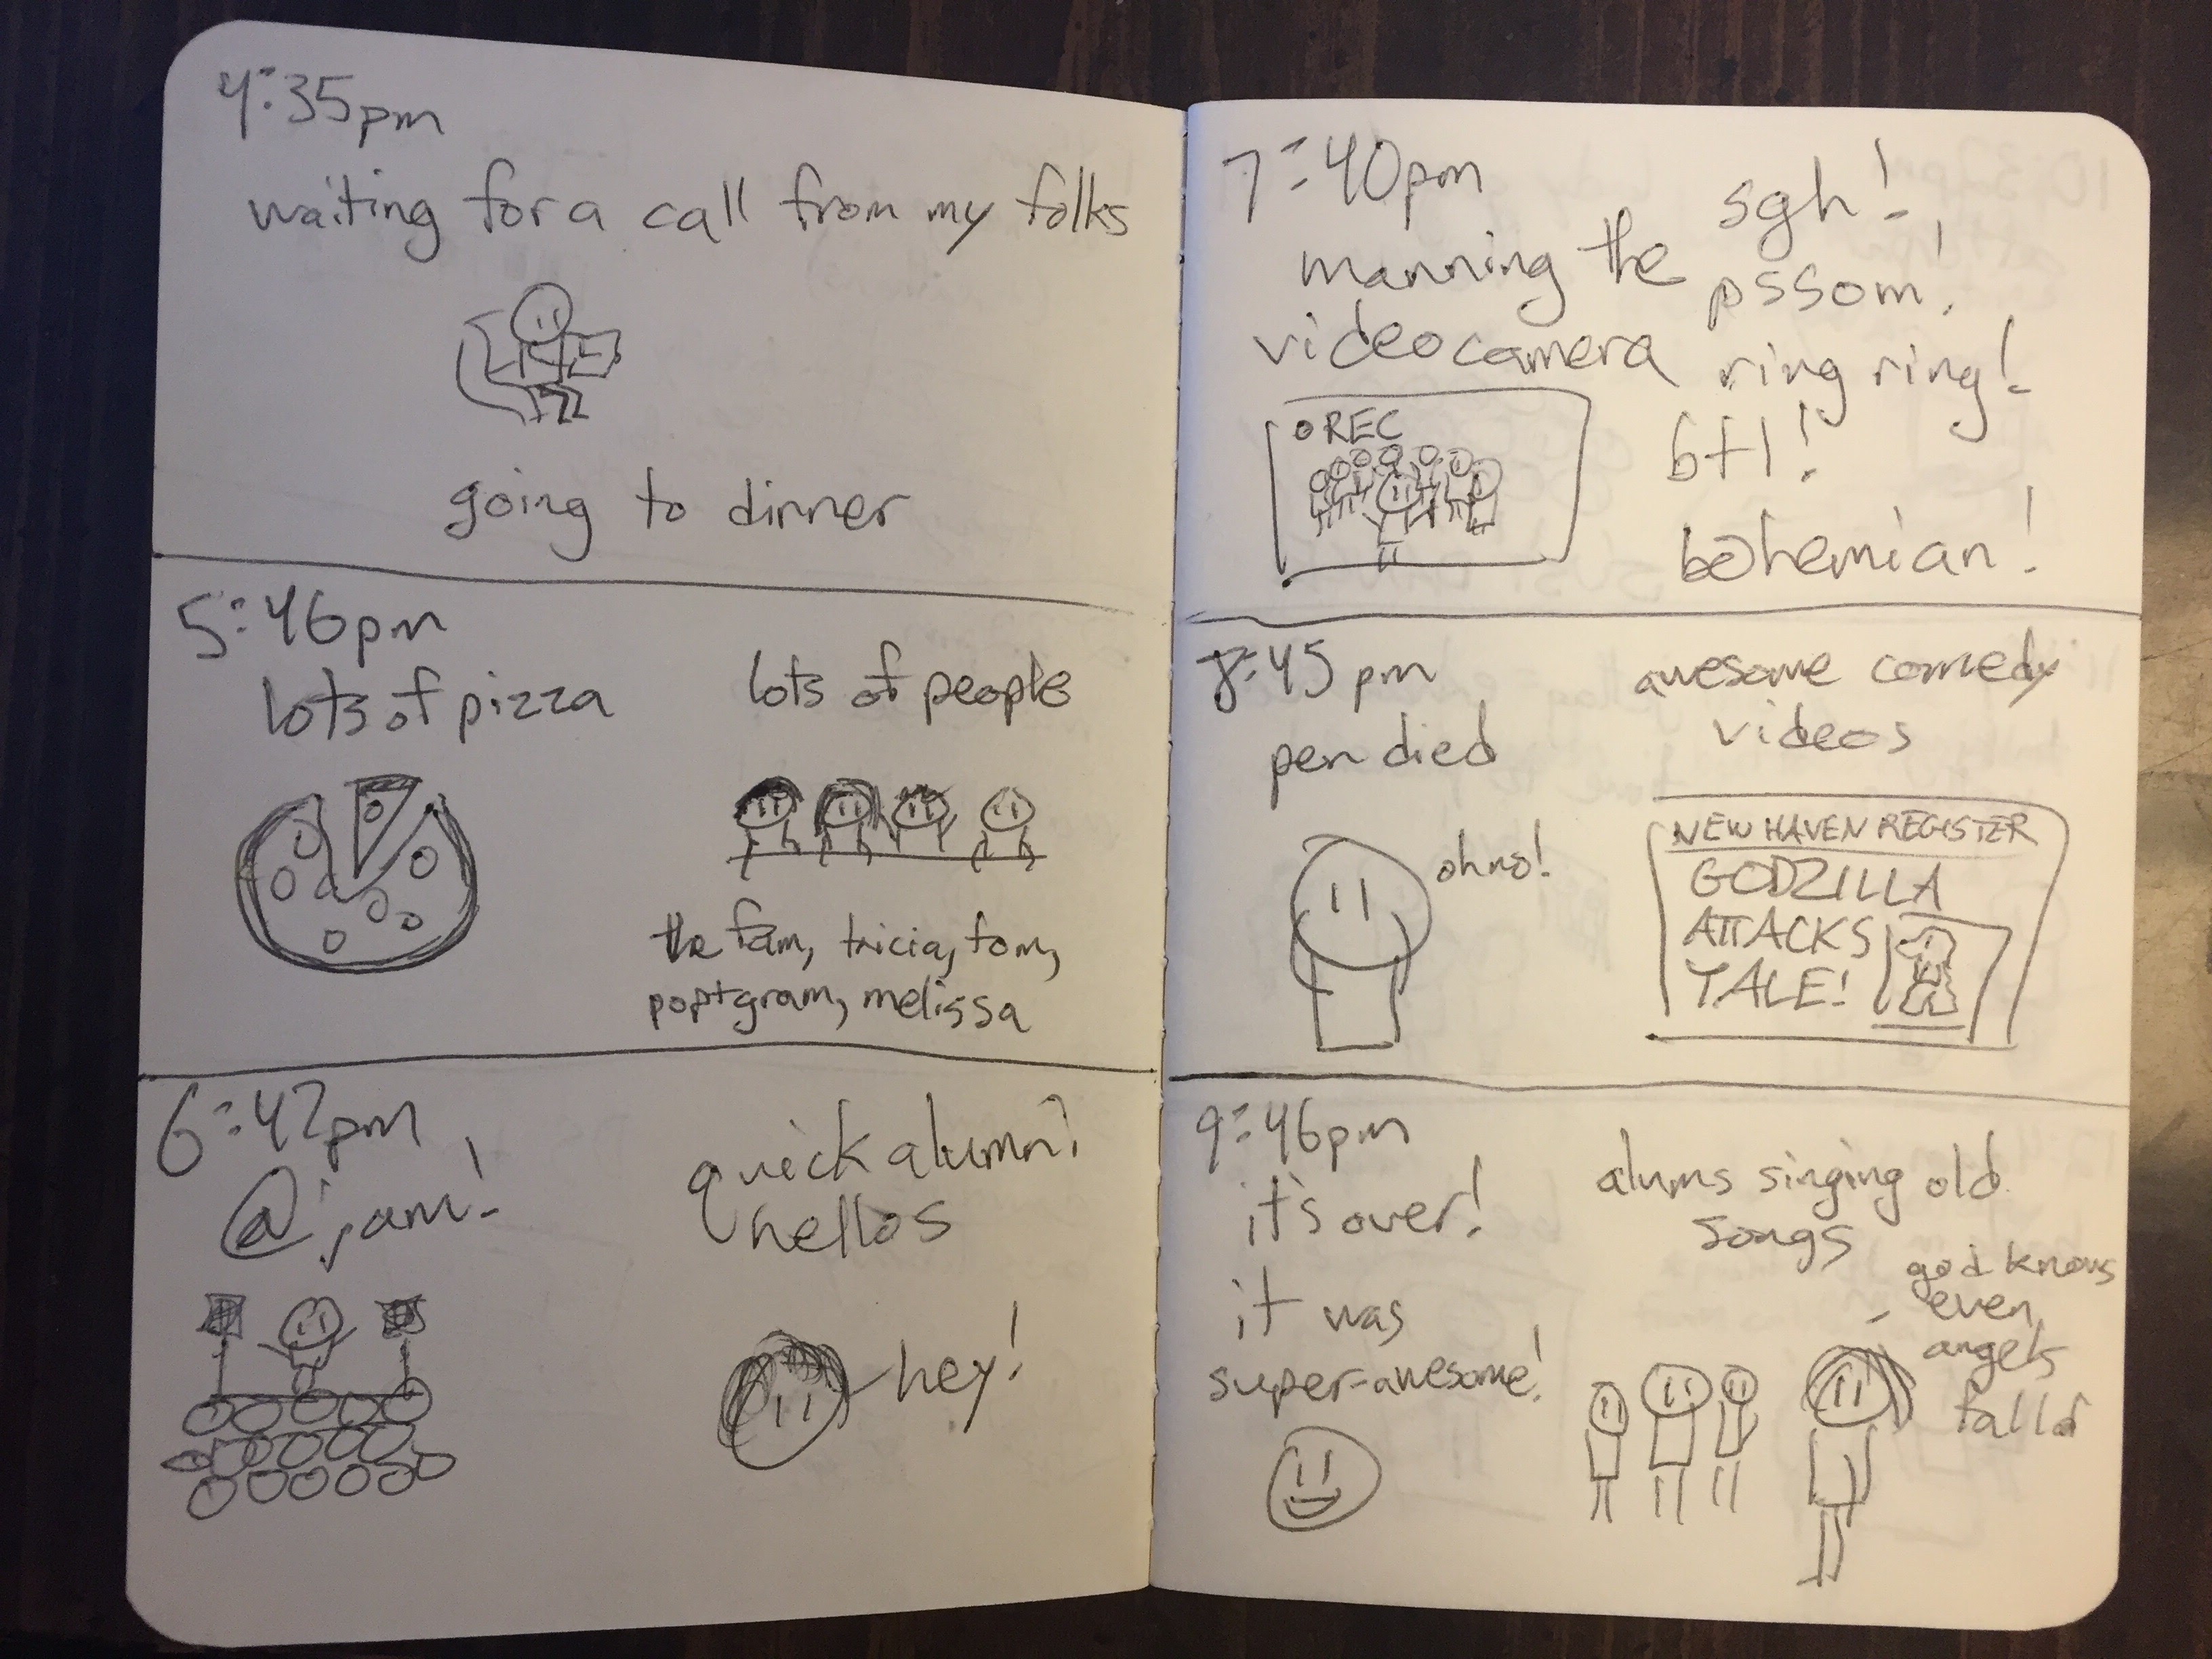 4:35pm
waiting for a call from my folks
going to dinner
5:46pm
lots of pizza
lots of people
the fam, tricia, tom,
pop+gram, melissa
6:42pm
@ jam!
quick alumni
hellos
hey!
7:40pm
manning the
videocamera
sgh!
pssom!
ring ring!
btl!
bohemian!
REC
8:45pm
pen died
oh no!
awesome comedy
videos
NEW HAVEN REGISTER
GODZILLA
ATTACKS
YALE!
9:46pm
it's over!
it was
super-awesome!
alums singing old
songs
god knows
even
angels
fall